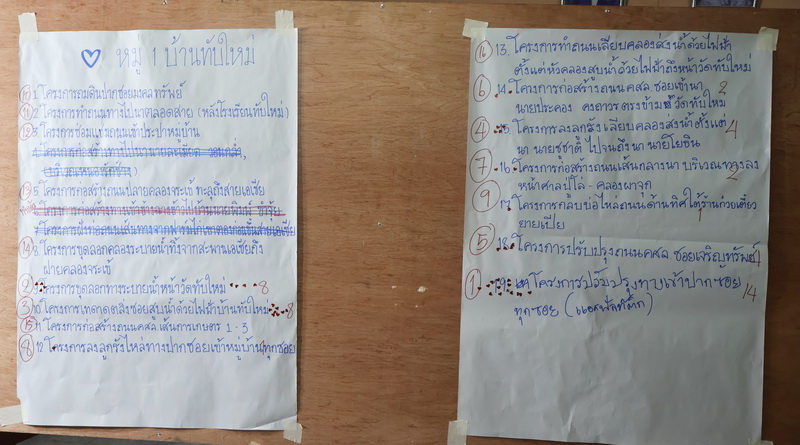 ♡ หมู่ 1 บ้านทับใหม่
1. โครงการถมดินปากซอยมงคลทรัพย์
11 2 โครงการทำถนนทางไปนาตลอดสาย (หลังโรงเรียนทับใหม่)
12 3 โครงการซ่อมแซมถนนเข้าประปาหมู่บ้าน
4 โครงการก่อสร้างทางไปนา
13 5 โครงการก่อสร้างถนนปลายคลองจระเข้ ทะลุถึงสายเอเชีย
6 โครงการก่อสร้างทางเข้า ไปบ้านนายพิมณ์
7 โครงการฝังท่อถนนเส้นทางจากฟาร์มไก่ ขึ้นสายเอเชีย
14 8 โครงการขุดลอกคลองระบายน้ำทิ้งจากสะพานเอเชียถึง
ฝายคลองจระเข้
2 โครงการขุดลอกทางระบายน้ำหน้าวัดทับใหม่ 8
3 10 โครงการเทคอนกรีตซอยสูบน้ำด้วยไฟฟ้าบ้านทับใหม่ 8
15 11 โครงการก่อสร้างถนนคสล เส้นการเกษตร 1 - 3
8 12 โครงการลงลูกรังไหล่ทางปากซอยเข้าหมู่บ้านทุกซอย
16 13. โครงการทำถนนเลียบคลองส่งน้ำด้วยไฟฟ้า
ตั้งแต่หัวคลองสูบน้ำด้วยไฟฟ้าถึงหน้าวัดทับใหม่
6 14. โครงการก่อสร้างถนน คสล ซอยเข้านา 2
นายประคอง คงถาวร ตรงข้าม วัดทับใหม่
4 15 โครงการลงลูกรัง เลียบคลองส่งน้ำตั้งแต่ 4
นา นายชูชาติ ไปจนถึงนา นายโยธิน
7 16 โครงการก่อสร้างถนนเส้นกลางนา บริเวณทางลง
หน้าศาลปู่โล่ - คลองผาจุก 2
9 17 โครงการกลบบ่อไหล่ถนนด้านทิศใต้ร้านก๋วยเตี๋ยว
ยายเปีย 1
5 18 โครงการปรับปรุงถนนคสล ซอยเจริญทรัพย์ 4
1 19 โครงการปรับปรุงทางเข้าปากซอย
ทุกซอย 14